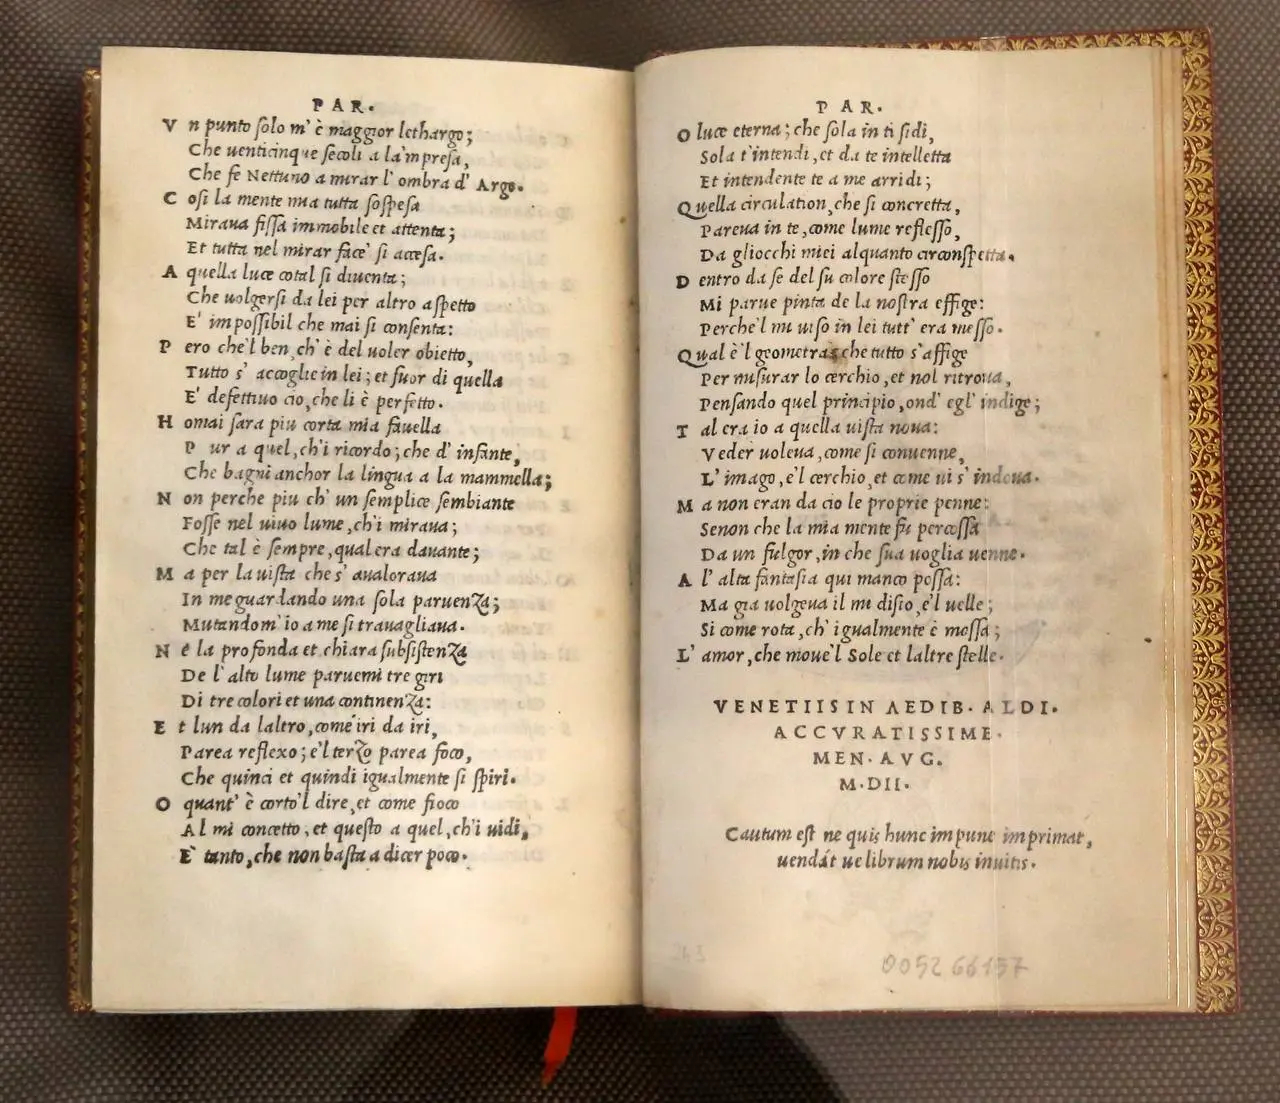 PAR.
Vn punto solo m' è maggior lethargo;
Che uenticinque secoli a la'mpresa,
Che fe Nettuno a mirar l' ombra d' Argo.
Cosi la mente mia tutta sospesa
Miraua fissa immobile et attenta;
Et tutta nel mirar face' si accesa.
A quella luce cotal si diuenta;
Che uolgersi da lei per altro aspetto
E' impossibil che mai si consenta:
Pero che'l ben, ch' è del uoler obietto,
Tutto s' accoglie in lei; et fuor di quella
E' defettiuo cio, che li è perfetto.
Homai sara piu corta mia fauella
Pur a quel, ch'i ricordo; che d' infante,
Che bagni anchor la lingua a la mammella;
Non perche piu ch' un semplice sembiante
Fosse nel uiuo lume, ch'i miraua;
Che tal è sempre, qual era dauante;
Ma per la uista che s' aualoraua
In me guardando una sola paruenza;
Mutandom' io a me si trauagliaua.
Ne la profonda et chiara subsistenza
De l' alto lume paruemi tre giri
Di tre colori et una continenza:
Et lun da laltro, come iri da iri,
Parea reflexo; e'l terzo parea foco,
Che quinci et quindi igualmente si spiri.
O quant' è corto'l dire, et come fioco
Al mi concetto, et questo a quel, ch'i uidi,
E' tanto, che non basta a dicer poco.
PAR.
O luce eterna; che sola in ti sidi,
Sola t'intendi, et da te intelletta
Et intendente te a me arridi;
Quella circulation, che si concretta,
Pareua in te, come lume reflesso,
Da gliocchi miei alquanto circonspetta.
Dentro da se del su colore stesso
Mi parue pinta de la nostra effige:
Perche'l mi uiso in lei tutt' era messo.
Qual è'l geometra, che tutto s'affige
Per misurar lo cerchio, et nol ritroua,
Pensando quel principio, ond' egl' indige;
Tal era io a quella uista noua:
Veder uoleua, come si conuenne,
L' imago, e'l cerchio, et come ui s' indoua.
Ma non eran da cio le proprie penne:
Senon che la mia mente fu percossa
Da un fulgor, in che sua uoglia uenne.
A l' alta fantasia qui manco possa:
Ma gia uolgeua il mi disio, e'l uelle;
Si come rota, ch' igualmente è mossa;
L' amor, che moue'l Sole et laltre stelle.
VENETIIS IN AEDIB. ALDI.
ACCVRATISSIME.
MEN. AVG.
M.DII.
Cautum est ne quis hunc impune imprimat,
uendát ue librum nobis inuitis.
243 0052 66157